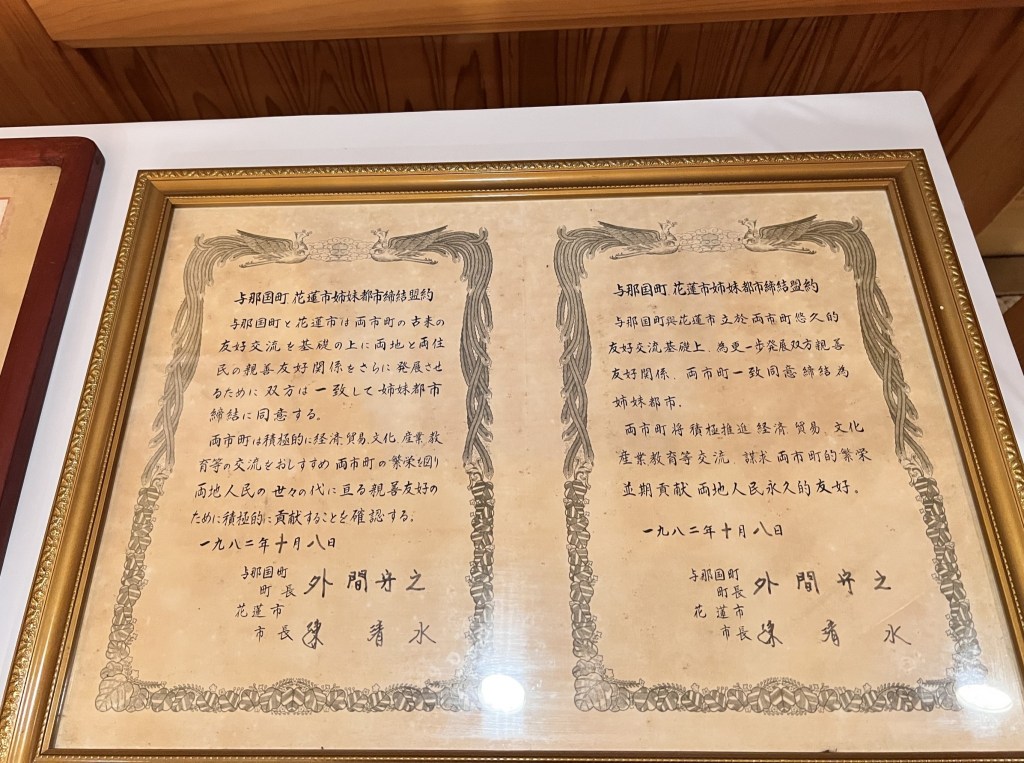 与那国町 花蓮市姉妹都市締結盟約
与那国町と花蓮市は両市町の古来の
友好交流を基礎の上に両地と両住
民の親善友好関係をさらに発展させ
るために双方は一致して姉妹都市
締結に同意する。
両市町は積極的に経済.貿易.文化.産業.教
育等の交流をおしすすめ両市町の繁栄を図り
両地人民の世々の代に亘る親善友好の
ために積極的に貢献することを確認する。
一九八二年十月八日
与那国町
町長 外間守之
花蓮市
市長 陳清水
与那国町.花蓮市姉妹都市締結盟約
与那国町與花蓮市立於両市町悠久的
友好交流基礎上.為更一步発展双方親善
友好関係.両市町一致同意締結為
姉妹都市.
両市町将積極推進経済.貿易.文化
産業教育等交流.謀求両市町的繁栄
並期貢献両地人民永久的友好。
一九八二年十月八日
与那国町
町長 外間守之
花蓮市
市長 陳清水